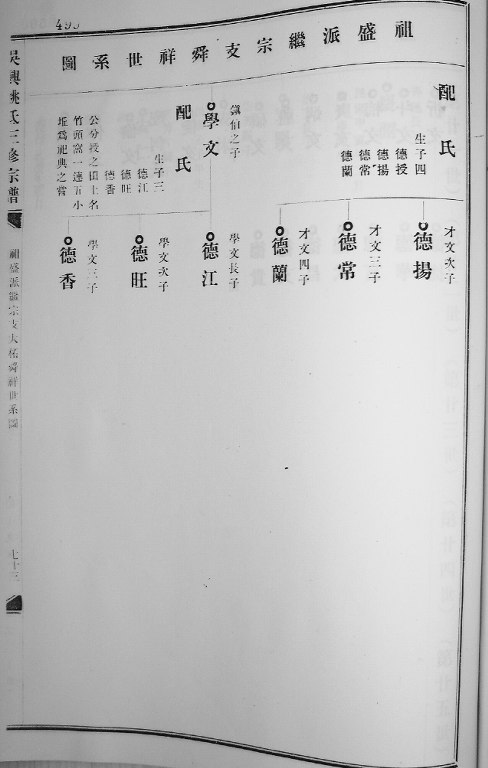 495
祖盛派繼宗支舜祥世系圖
配氏
生子四
德授
德揚
德常
德蘭
才文次子
德揚
才文三子
德常
才文四子
德蘭
伯之子
學文
配氏
生子三
德江
德旺
德香
公分授之田土名
竹頭窩一連五小
坵為祀典之嘗
學文長子
德江
學文次子
德旺
學文三子
德香
吳興姚氏三修宗譜
祖盛派繼宗支大佑舜祥世系圖
七十三